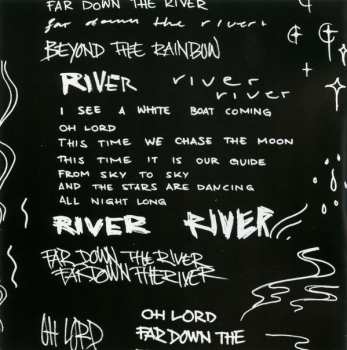 FAR DOWN THE RIVER
far down the river
BEYOND THE RAINBOW
RIVER river
river
I SEE A WHITE BOAT COMING
OH LORD
THIS TIME WE CHASE THE MOON
THIS TIME IT IS OUR GUIDE
FROM SKY TO SKY
AND THE STARS ARE DANCING
ALL NIGHT LONG
RIVER RIVER
FAR DOWN THE RIVER
FAR DOWN THE RIVER
OH LORD
OH LORD
FAR DOWN THE